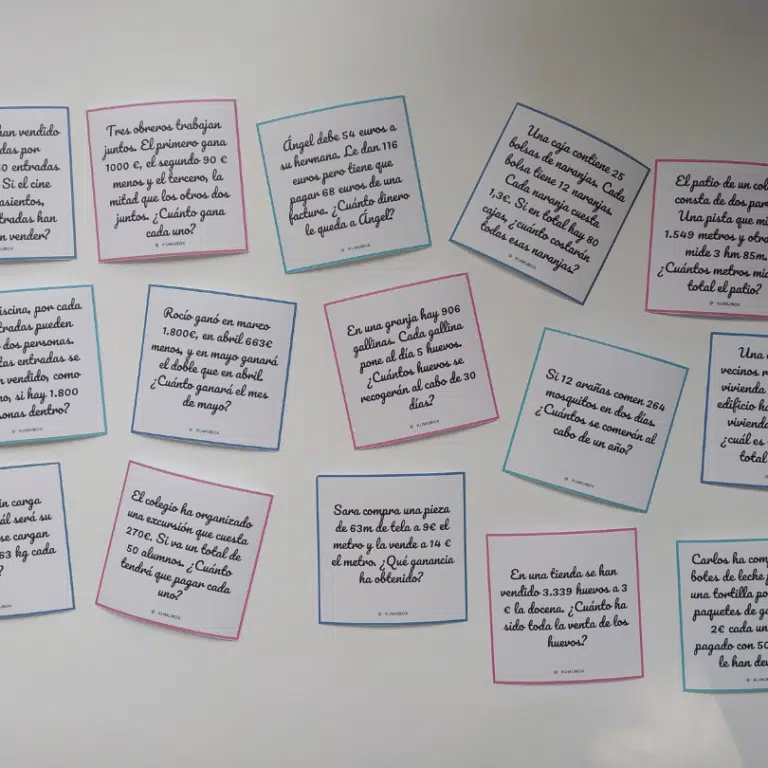 han vendido
das por
0 entradas
Si el cine
asientos,
tradas han
n vender?
Tres obreros trabajan
juntos. El primero gana
1000 €, el segundo 90 €
menos y el tercero, la
mitad que los otros dos
juntos. ¿Cuánto gana
cada uno?
KUMUBOX
Ángel debe 54 euros a
su hermana. Le dan 116
euros pero tiene que
pagar 68 euros de una
factura. ¿Cuánto dinero
le queda a Ángel?
KUMUBOX
Una caja contiene 25
bolsas de naranjas. Cada
bolsa tiene 12 naranjas.
Cada naranja cuesta
1,3€. Si en total hay 80
cajas, ¿cuánto costarán
todas esas naranjas?
KUMUBOX
El patio de un col
consta de dos par
Una pista que mi
1.549 metros y otra
mide 3 hm 85m.
¿Cuántos metros mid
total el patio?
KUMUBOX
iscina, por cada
tradas pueden
dos personas.
tas entradas se
n vendido, como
o, si hay 1.800
sonas dentro?
KUMUBOX
Rocío ganó en marzo
1.800€, en abril 663€
menos, y en mayo ganará
el doble que en abril.
¿Cuánto ganará el mes
de mayo?
KUMUBOX
En una granja hay 906
gallinas. Cada gallina
pone al día 5 huevos.
¿Cuántos huevos se
recogerán al cabo de 30
días?
KUMUBOX
Si 12 arañas comen 264
mosquitos en dos días.
¿Cuántos se comerán al
cabo de un año?
KUMUBOX
Una
vecinos
vivienda
edificio ha
vivienda
¿cuál es
total
in carga
ál será su
se cargan
63 kg cada
?
KUMUBOX
El colegio ha organizado
una excursión que cuesta
270€. Si va un total de
50 alumnos. ¿Cuánto
tendrá que pagar cada
uno?
KUMUBOX
Sara compra una pieza
de 63m de tela a 9€ el
metro y la vende a 14 €
el metro. ¿Qué ganancia
ha obtenido?
KUMUBOX
En una tienda se han
vendido 3.339 huevos a 3
€ la docena. ¿Cuánto ha
sido toda la venta de los
huevos?
KUMUBOX
Carlos ha com
botes de leche
una tortilla po
paquetes de ga
2€ cada un
pagado con 50
le han dev